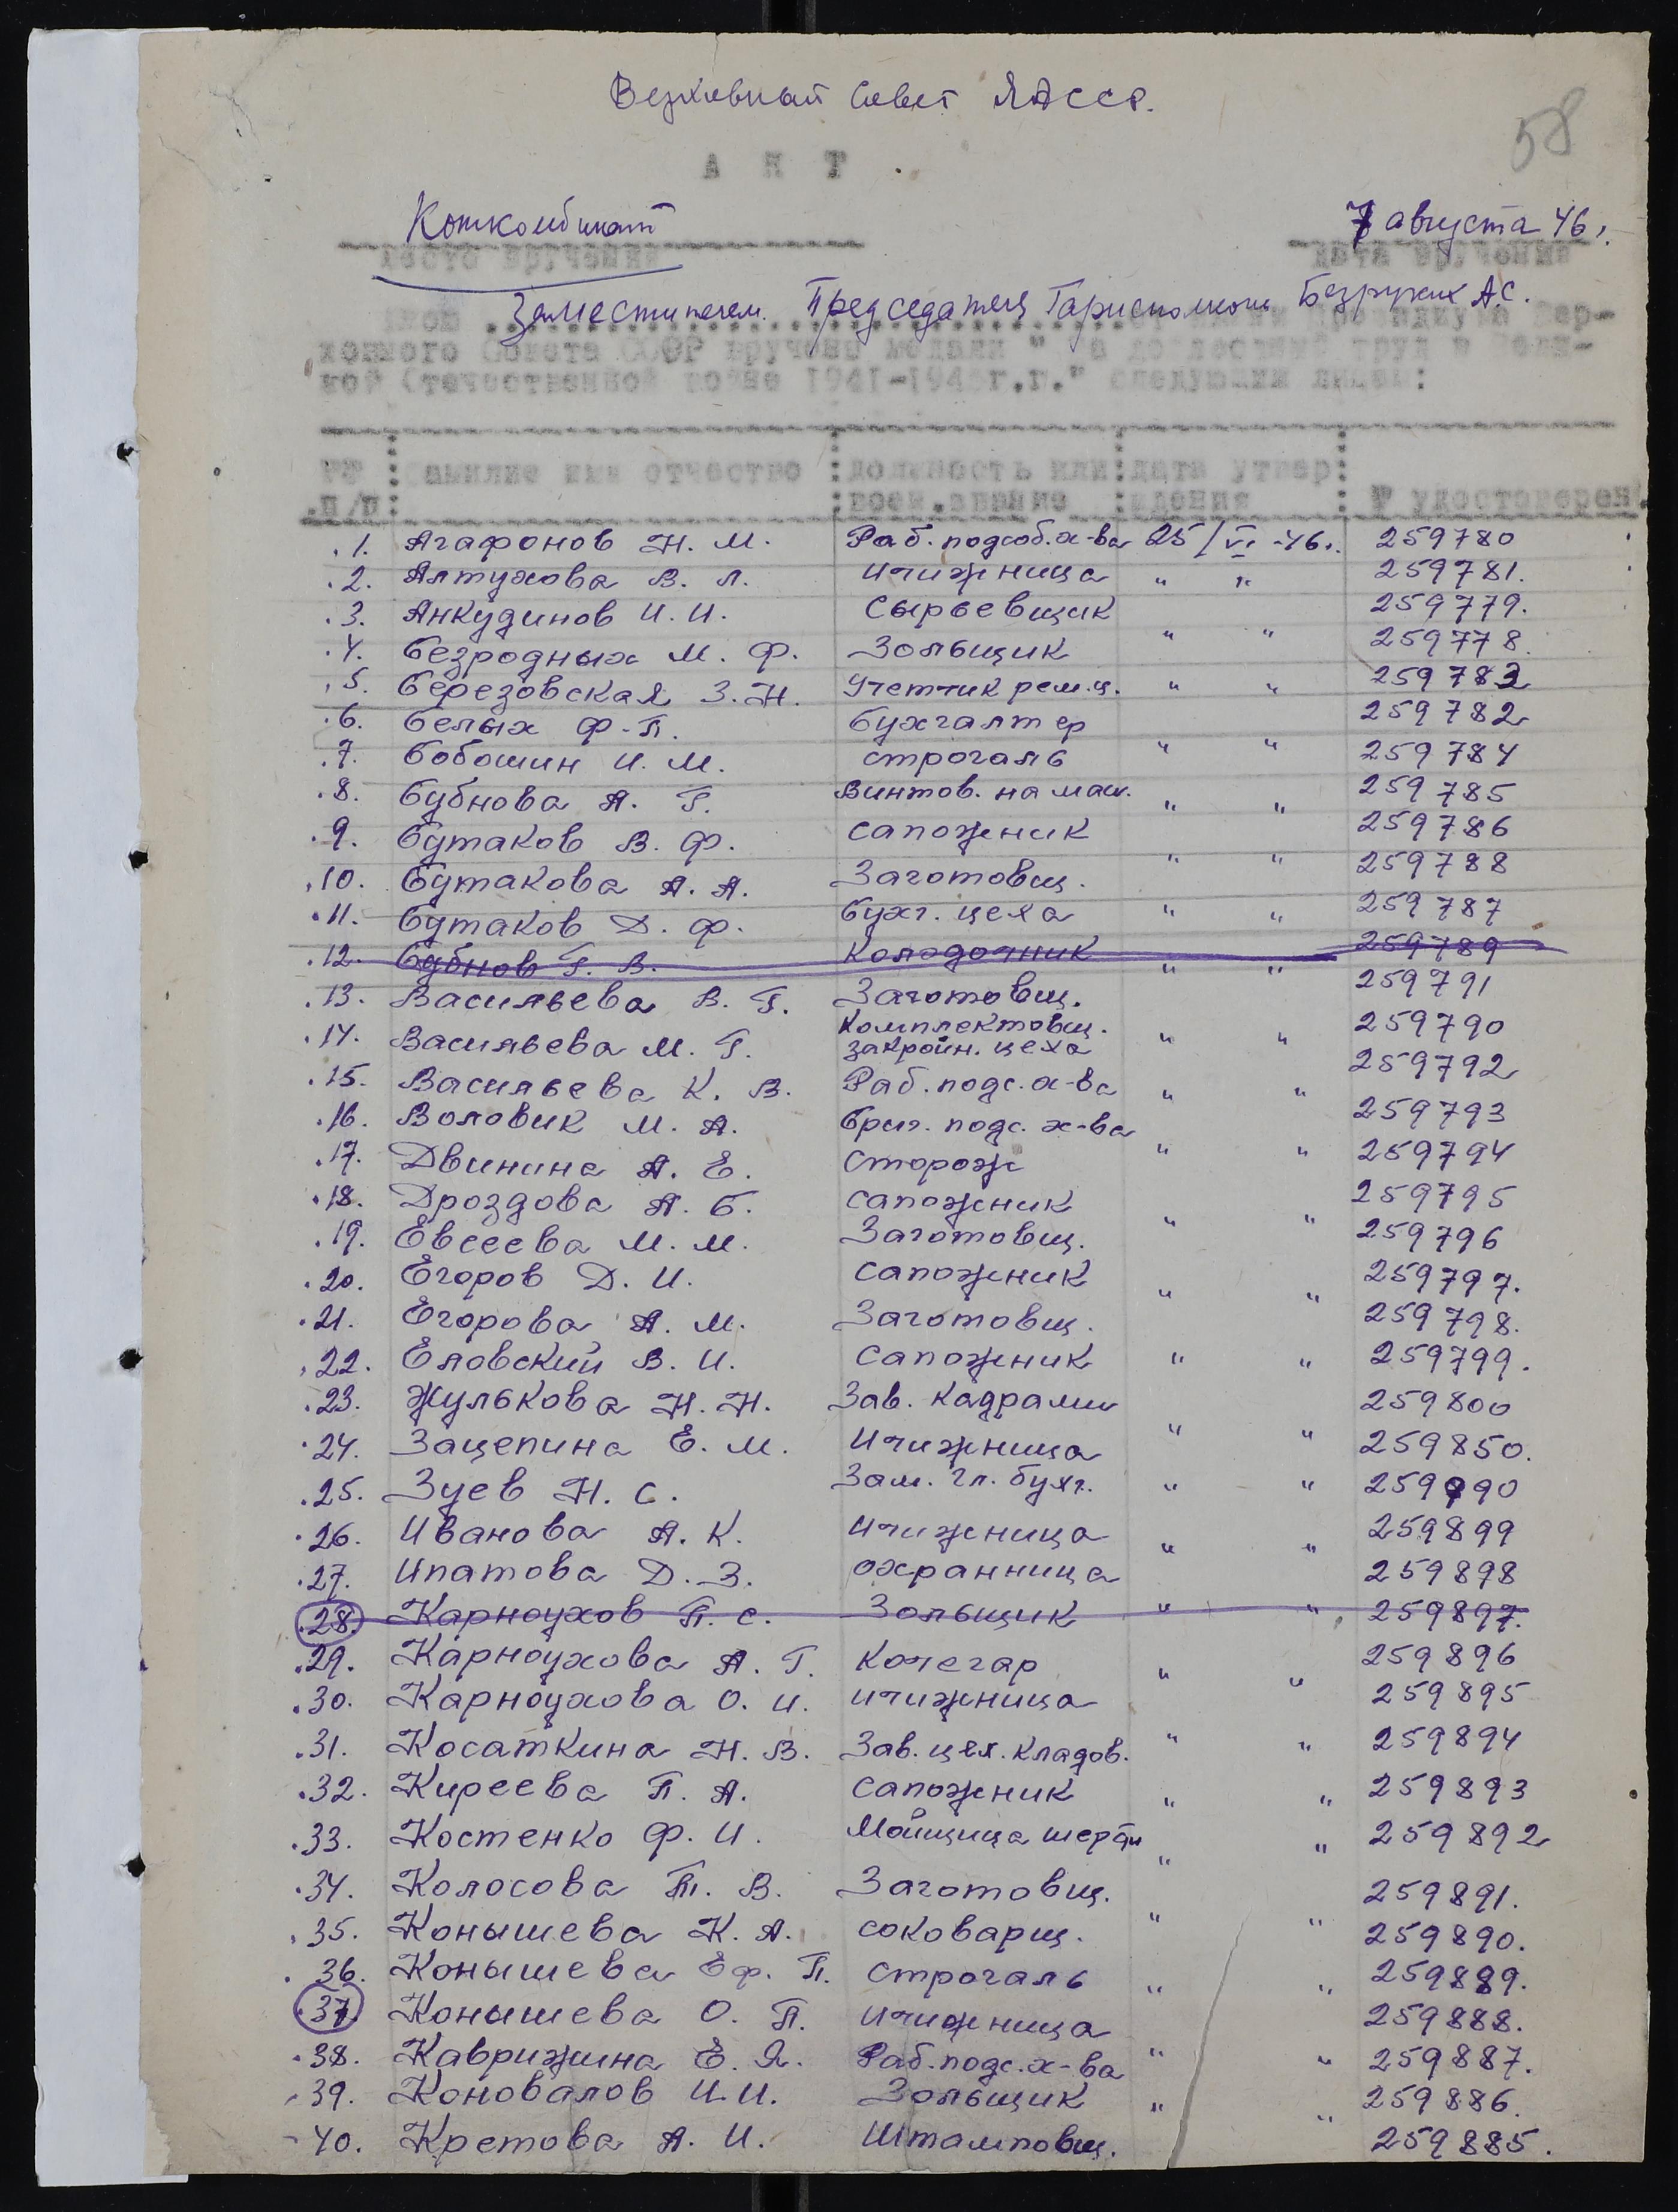 Верховный Совет ЯАССР.
58
АКТ
Кожкомбинат
7 августа 46 г.
место вручения
дата вручения
Заместителем Председателя Горисполкома Безруких А.С.
ховного Совета СССР вручены медали "За доблестный труд в Вели-
кой Отечественной войне 1941-1945 г.г." следующим лицам:
№№ п/п : Фамилие имя отчество : должность или воен.звание : дата утверждения : № удостоверен.
1. Агафонов Н. М. Раб. подсоб. х-ва 25/VI-46 г. 259780
2. Алтухова В. Л. Ичижница " " 259781.
3. Анкудинов И. И. Сырьевщик 259779.
4. Безродных М. Ф. Зольщик " " 259778.
5. Березовская З. Н. Учетчик рем.ц. " " 259783
6. Белых Ф. П. бухгалтер 259782
7. Бобошин И. М. строгаль " " 259784
8. Бубнова А. Г. Винтов. на маш. " " 259785
9. Бутаков В. Ф. сапожник 259786
10. Бутакова А. А. Заготовщ. " " 259788
11. Бутаков Д. Ф. бухг. цеха " " 259787
12. Бубнов Г. В. Колодочник " " 259789
13. Васильева В. Г. Заготовщ. 259791
14. Васильева М. Г. Комплектовщ. закройн. цеха " " 259790
15. Васильева К. В. Раб. подс. х-ва " " 259792
16. Воловик М. А. бриг. подс. х-ва 259793
17. Двинина А. Е. сторож " " 259794
18. Дроздова А. Б. сапожник 259795
19. Евсеева М. М. Заготовщ. " " 259796
20. Егоров Д. И. сапожник 259797.
21. Егорова А. М. Заготовщ. " " 259798.
22. Еловский В. И. сапожник " " 259799.
23. Жулькова Н. Н. Зав. кадрами 259800
24. Зацепина Е. М. Ичижница " " 259850.
25. Зуев Н. С. Зам. гл. бухг. " " 259990
26. Иванова А. К. Ичижница " " 259899
27. Ипатова Д. З. охранница 259898
28. Карноухов П. С. Зольщик " " 259897.
29. Карноухова А. Г. Кочегар " " 259896
30. Карноухова О. И. ичижница 259895
31. Косаткина Н. В. Зав. цех. кладов. " " 259894
32. Киреева П. А. сапожник " " 259893
33. Костенко Ф. И. Мойщица шерсти " " 259892
34. Колосова Т. В. Заготовщ. 259891.
35. Конышева К. А. соковарщ. " " 259890.
36. Конышева Еф. П. строгаль " " 259889.
37. Конышева О. П. ичижница 259888.
38. Каврижина Е. Я. Раб. подс. х-ва " " 259887.
39. Коновалов И. И. Зольщик " " 259886.
40. Кретова А. И. Штамповщ. 259885.